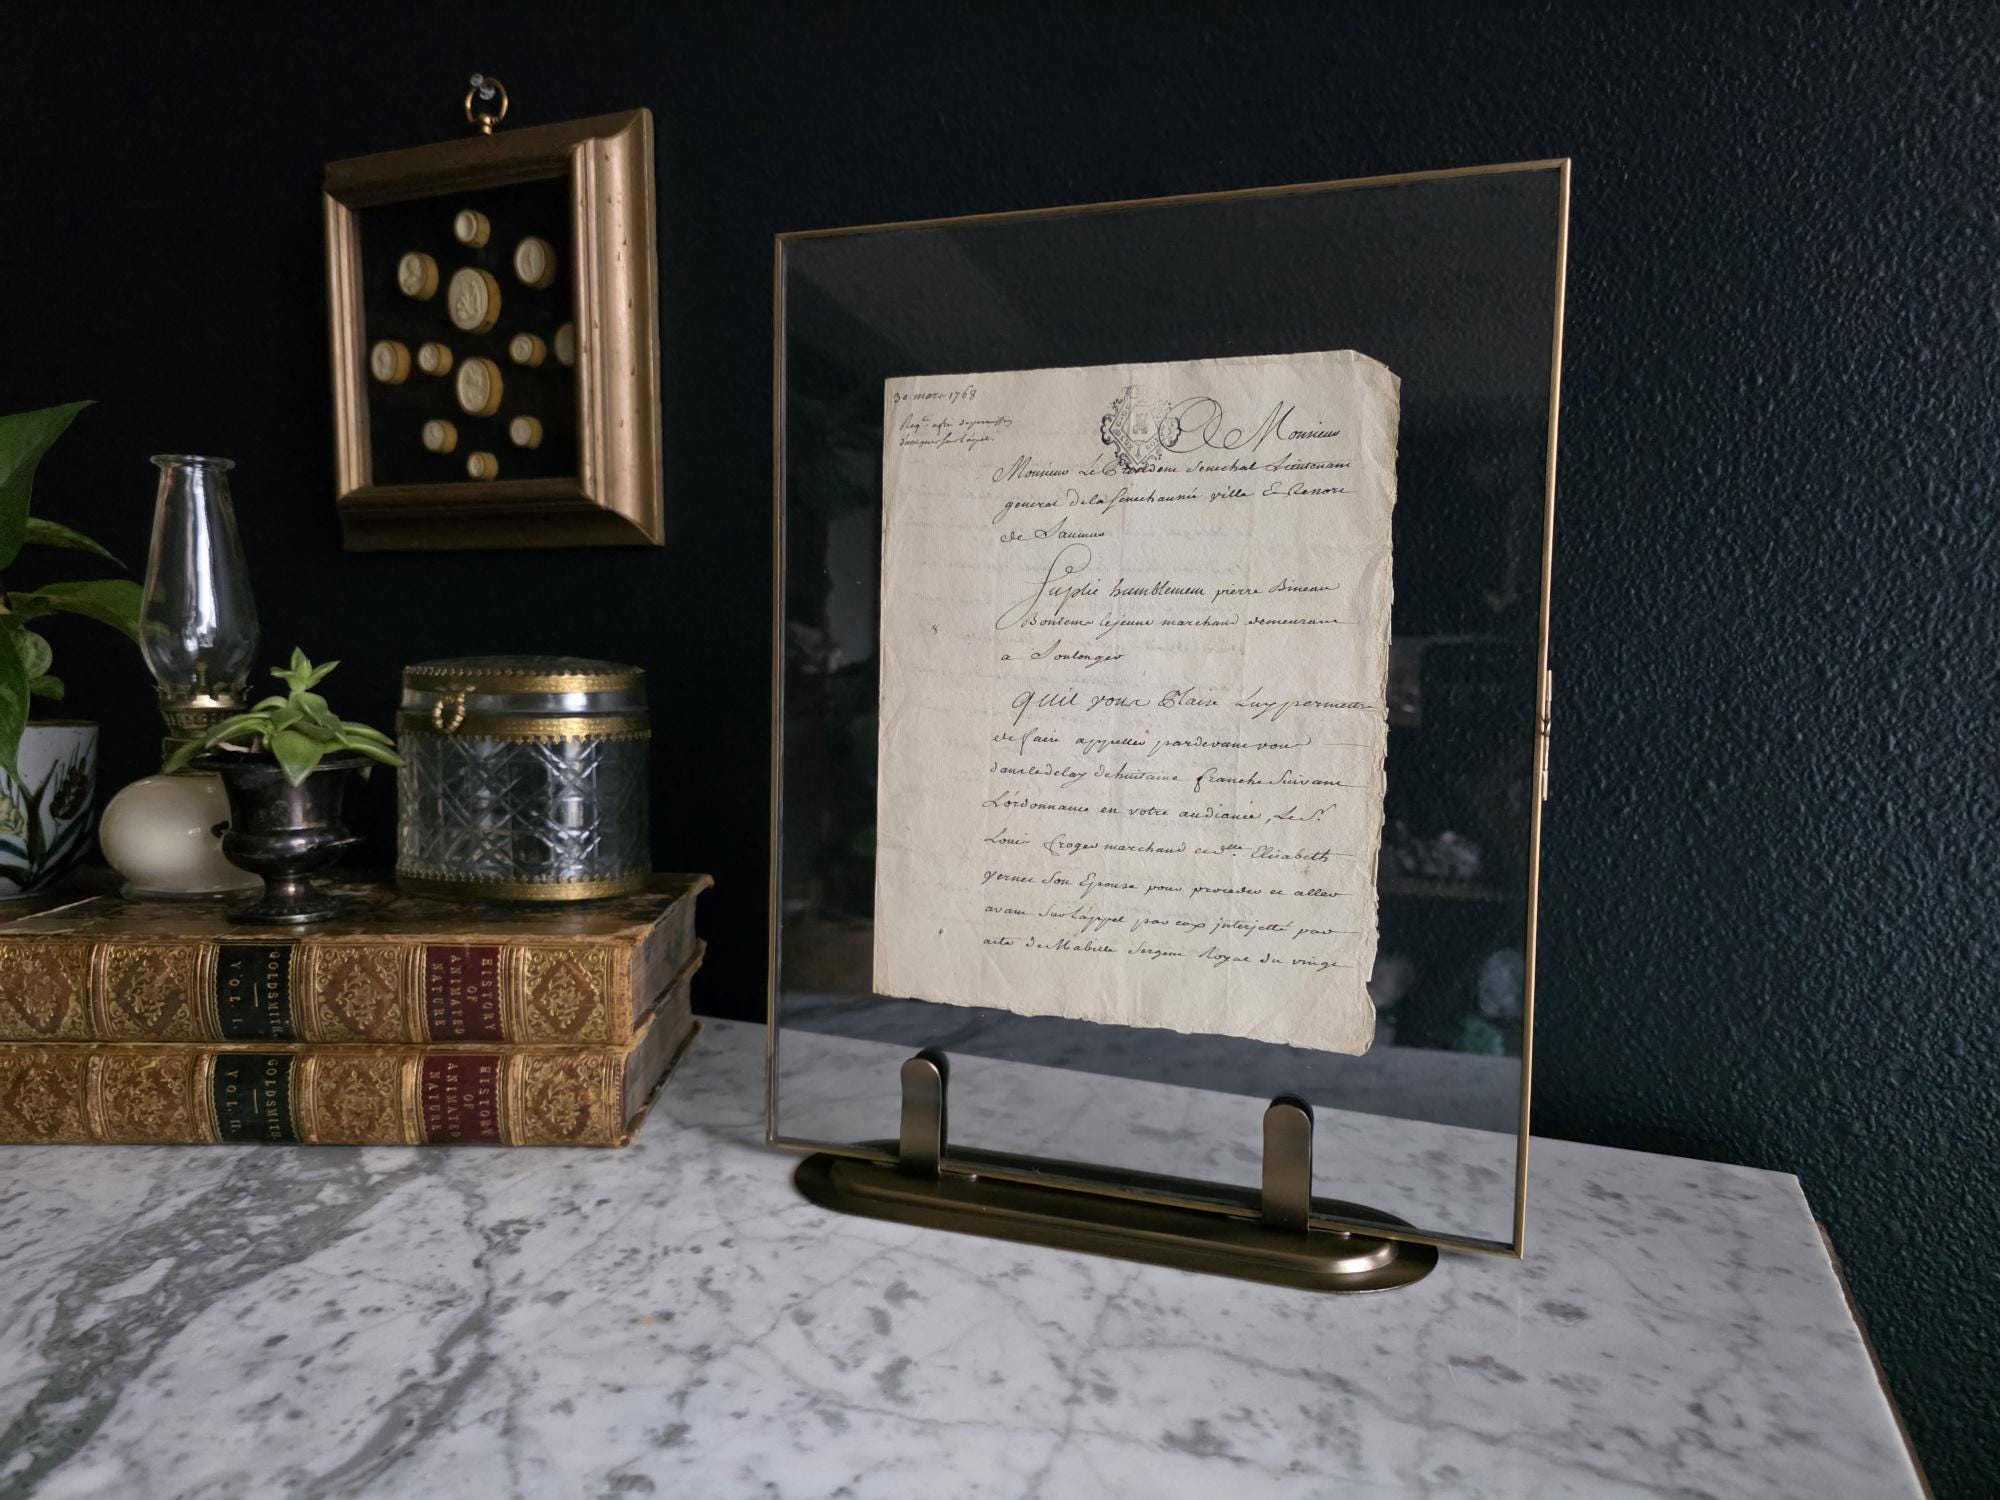 30 mars 1768
Reqte afin de permission
d'anticiper sur l'appel.
A Monsieur
Monsieur Le President Senechal Lieutenant
general de la Senechaussée ville &
de Saumur
Suplie humblement pierre Bineau
Bontems le jeune marchand demeurant
a Soulonger
quil vous Plaise Luy permettre
de faire appeller pardevant vous
dans le delay de huitaine franche Suivant
L'ordonnance en votre audiance, Le Sr.
Louis froger marchand et dlle. Elisabeth
Son Epouse pour proceder et aller
avant Sur L'appel par eux interjetté par
acte de Mabille Sergent Royal du vingt
GOLDSMITH
VOL. I.
HISTORY
OF
ANIMATED
NATURE
GOLDSMITH
VOL. II.
HISTORY
OF
ANIMATED
NATURE